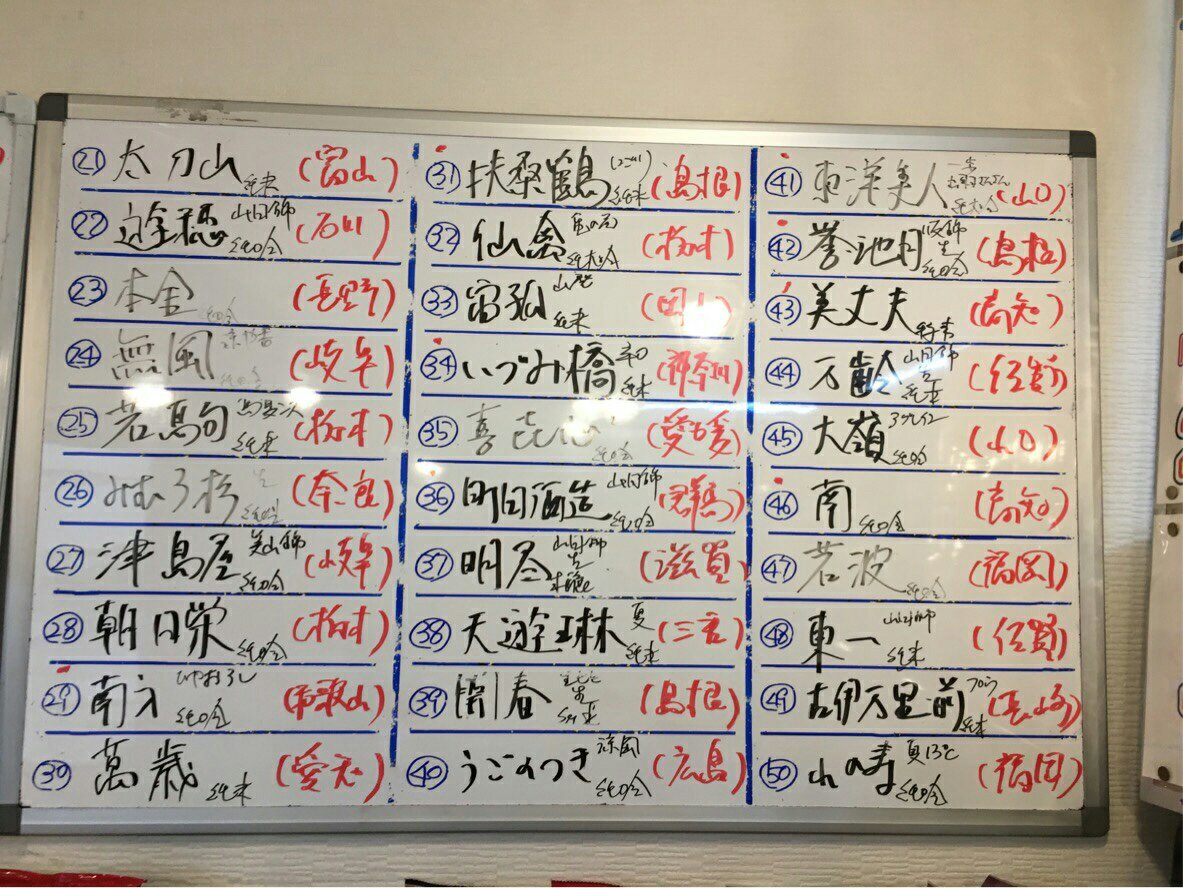 ㉑ 太刀山 純米 (富山)
㉒ 遊穂 山田錦 純吟 (石川)
㉓ 本金 純吟 (長野)
㉔ 無風 純吟 (岐阜)
㉕ 若駒 純米 (栃木)
㉖ みむろ杉 生 純吟 (奈良)
㉗ 津島屋 美山錦 純吟 (岐阜)
㉘ 朝日栄 純吟 (栃木)
㉙ 南方 ひやおろし 純吟 (和歌山)
㉚ 萬歳 純米 (愛知)
㉛ 扶桑鶴 (にごり) 純米 (島根)
㉜ 仙禽 亀の尾 純大吟 (栃木)
㉝ 宙狐 山廃 純米 (岡山)
㉞ いづみ橋 純米 (神奈川)
㉟ 喜 純吟 (愛媛)
㊱ 町田酒造 山田錦 純吟 (群馬)
㊲ 明尽 山田錦 生 (滋賀)
㊳ 天遊琳 夏 純米 (三重)
㊴ 開春 生 純米 (島根)
㊵ うごのつき 涼風 純吟 (広島)
㊶ 東洋美人 純大吟 (山口)
㊷ 誉池月 改良八反流 純吟 (島根)
㊸ 美丈夫 (高知)
㊹ 万齢 山田錦 生 純米 (佐賀)
㊺ 大嶺 3つぶ 純吟 (山口)
㊻ 南 純吟 (高知)
㊼ 若波 純吟 (福岡)
㊽ 東一 山田錦 純米 (佐賀)
㊾ 古伊万里前 純米
㊿ 山の寿 夏13℃ 純吟 (福岡)